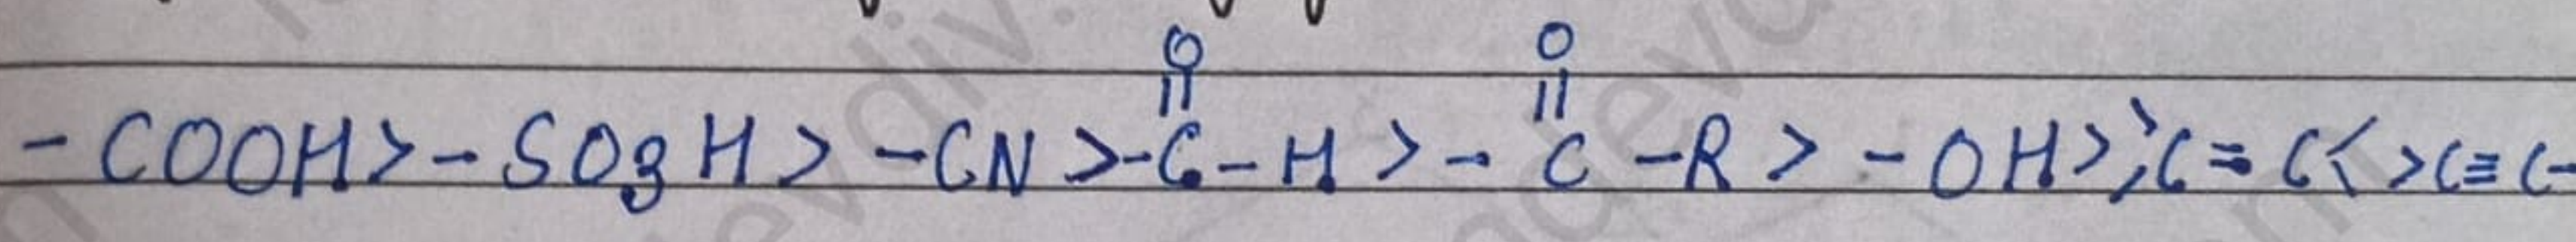 O O
|| ||
-COOH>-SO3H>-CN>-C-H>-C-R>-OH>>C=C<>C≡C-